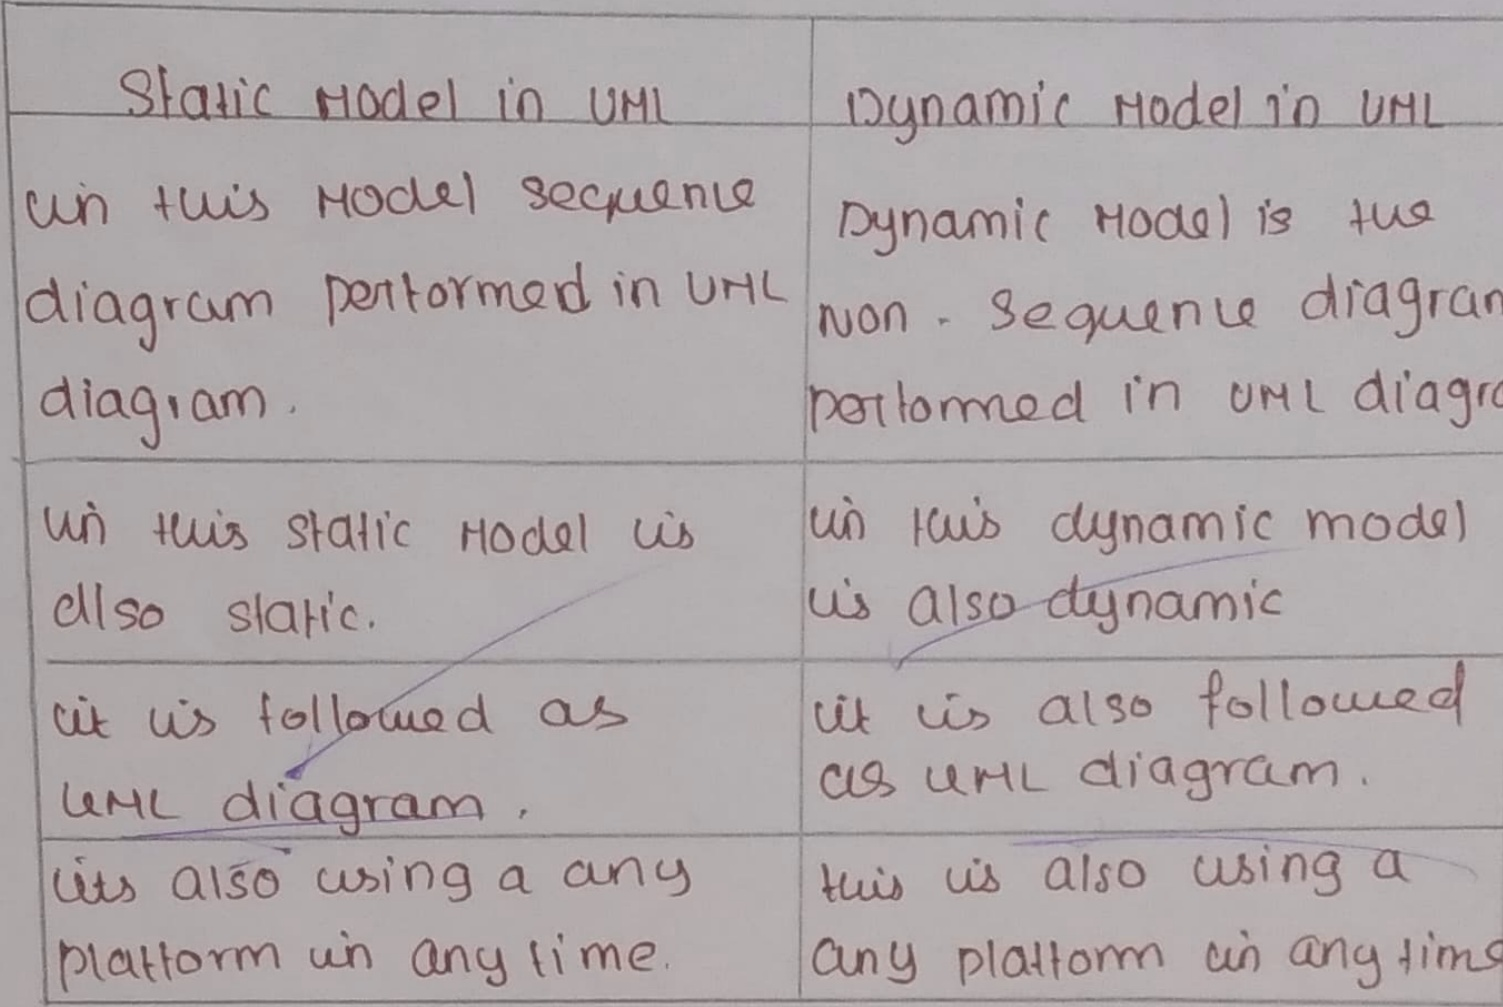 Static Model in UML
Dynamic Model in UML
in this Model sequence
diagram performed in UML
diagram.
Dynamic Model is the
Non - Sequence diagram
performed in UML diagra
in this static Model is
also static.
in this dynamic model
is also dynamic
it is followed as
UML diagram.
it is also followed
as UML diagram.
its also using a any
platform in any time.
this is also using a
any platform in any time